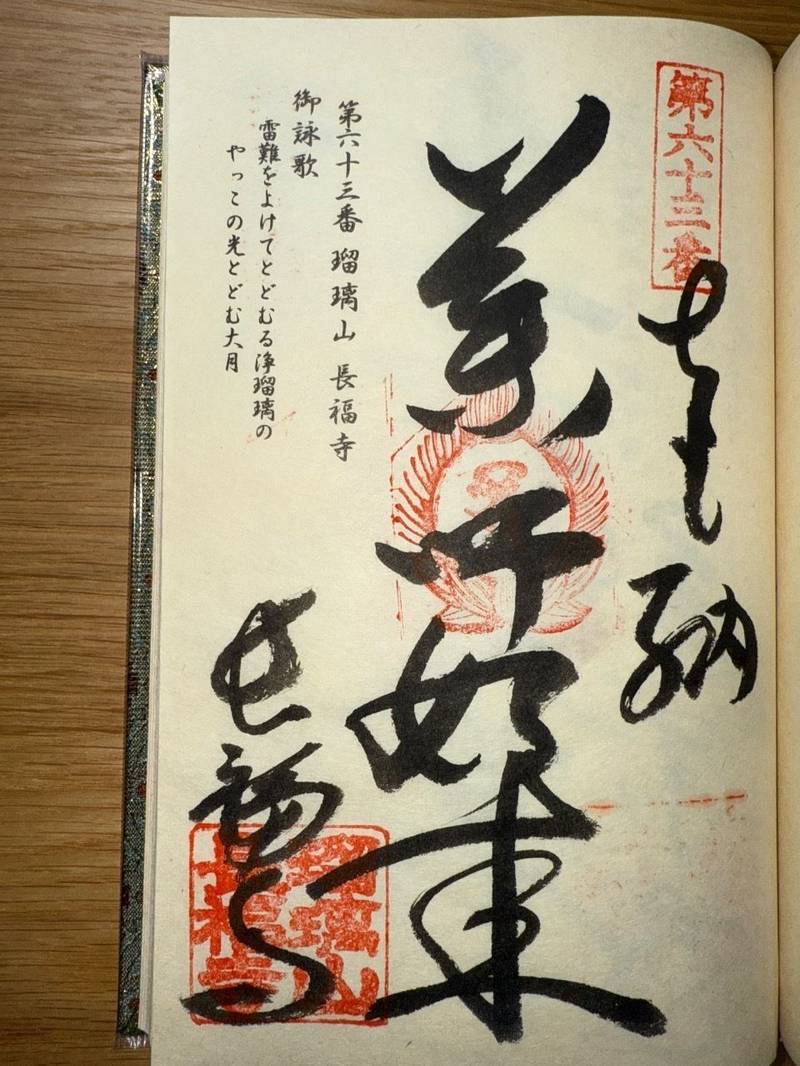 第六十三番
奉納
薬師如来
長福寺
第六十三番 瑠璃山 長福寺
御詠歌
雷難をよけてとどむる浄瑠璃の
やっこの光とどむ大月
瑠璃山
長福寺